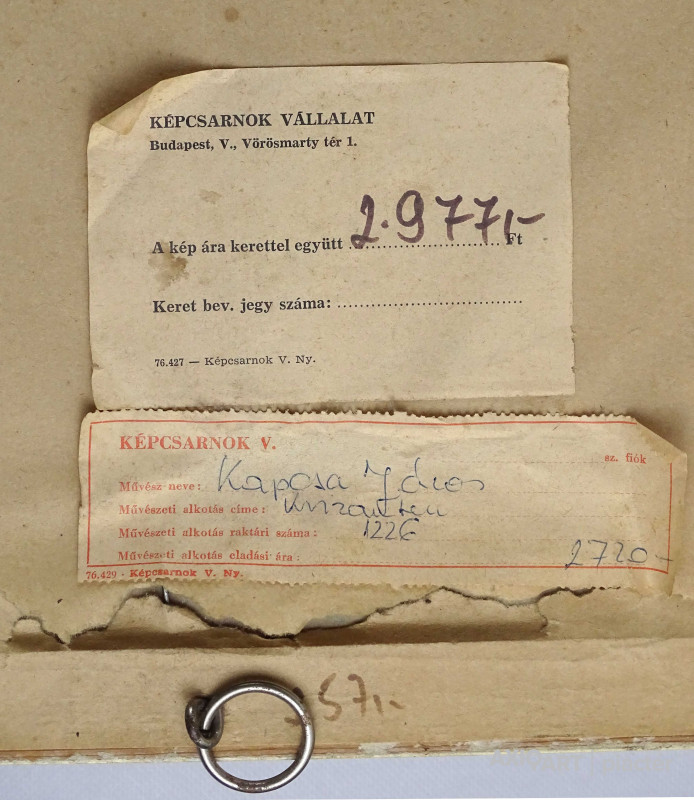 KÉPCSARNOK VÁLLALAT
Budapest, V., Vörösmarty tér 1.
A kép ára kerettel együtt 2.977,- Ft
Keret bev. jegy száma:
76.427 — Képcsarnok V. Ny.
KÉPCSARNOK V.
sz. fiók
Művész neve: Kapcsa János
Művészeti alkotás címe: Krizantém
Művészeti alkotás raktári száma: 1226
Művészeti alkotás eladási ára: 2720-
76.429 - Képcsarnok V. Ny.
57,-